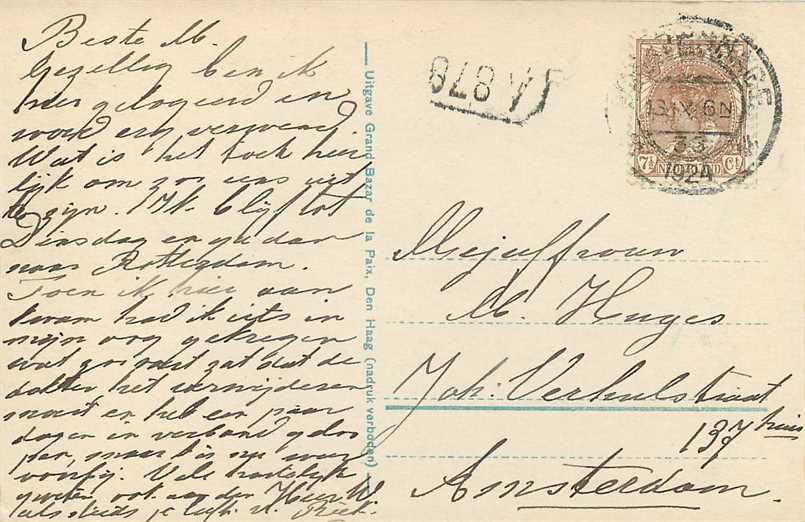 Beste M.
Gezellig ben ik
hier gelogeerd en
word erg verwend.
Wat is het toch heer
lijk om zoo eens uit
te zijn. Ik blijf tot
Dinsdag en ga dan
naar Rotterdam.
Toen ik hier aan
kwam had ik iets in
mijn oog gekregen
wat zoo vast zat dat de
dokter het verwijderen
moest en heb een paar
dagen in verband gelo
pen, maar is nu weer
voorbij. Vele hartelijke
groeten ook aan den Heer W.
als steeds je
Uitgave Grand Bazar de la Paix, Den Haag (nadruk verboden)
878
7½ NEDERLAND Ct
6N
1924
Mejuffrouw
M. Huges
Joh. Verhulststraat
137 huis
Amsterdam.